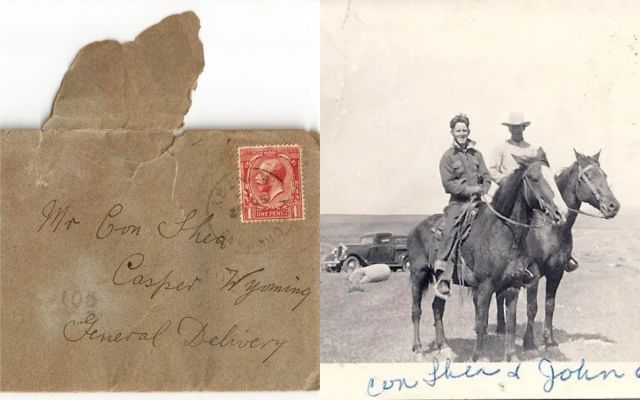 ONE PENNY
1 1
Mr Con Shea
Casper Wyoming
105
General Delivery
Con Shea & John